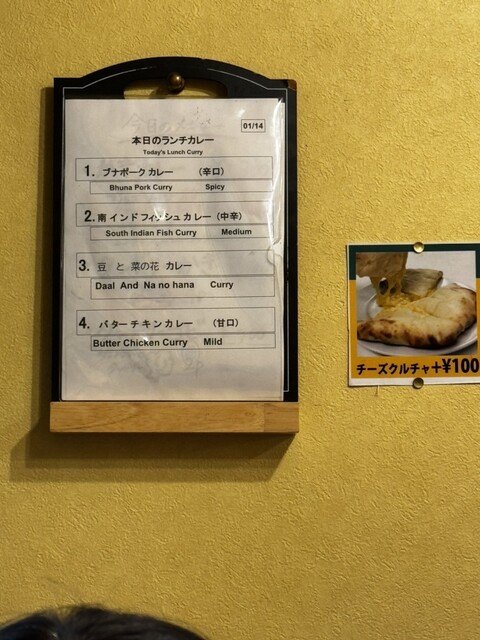 01/14
本日のランチカレー
Today's Lunch Curry
1. ブナポーク カレー (辛口)
Bhuna Pork Curry Spicy
2. 南 インド フィッシュ カ レー (中辛)
South Indian Fish Curry Medium
3. 豆 と 菜の花 カレー
Daal And Na no hana Curry
4. バ タ ー チ キ ン カ レ ー (甘口)
Butter Chicken Curry Mild
チーズクルチャ+¥100